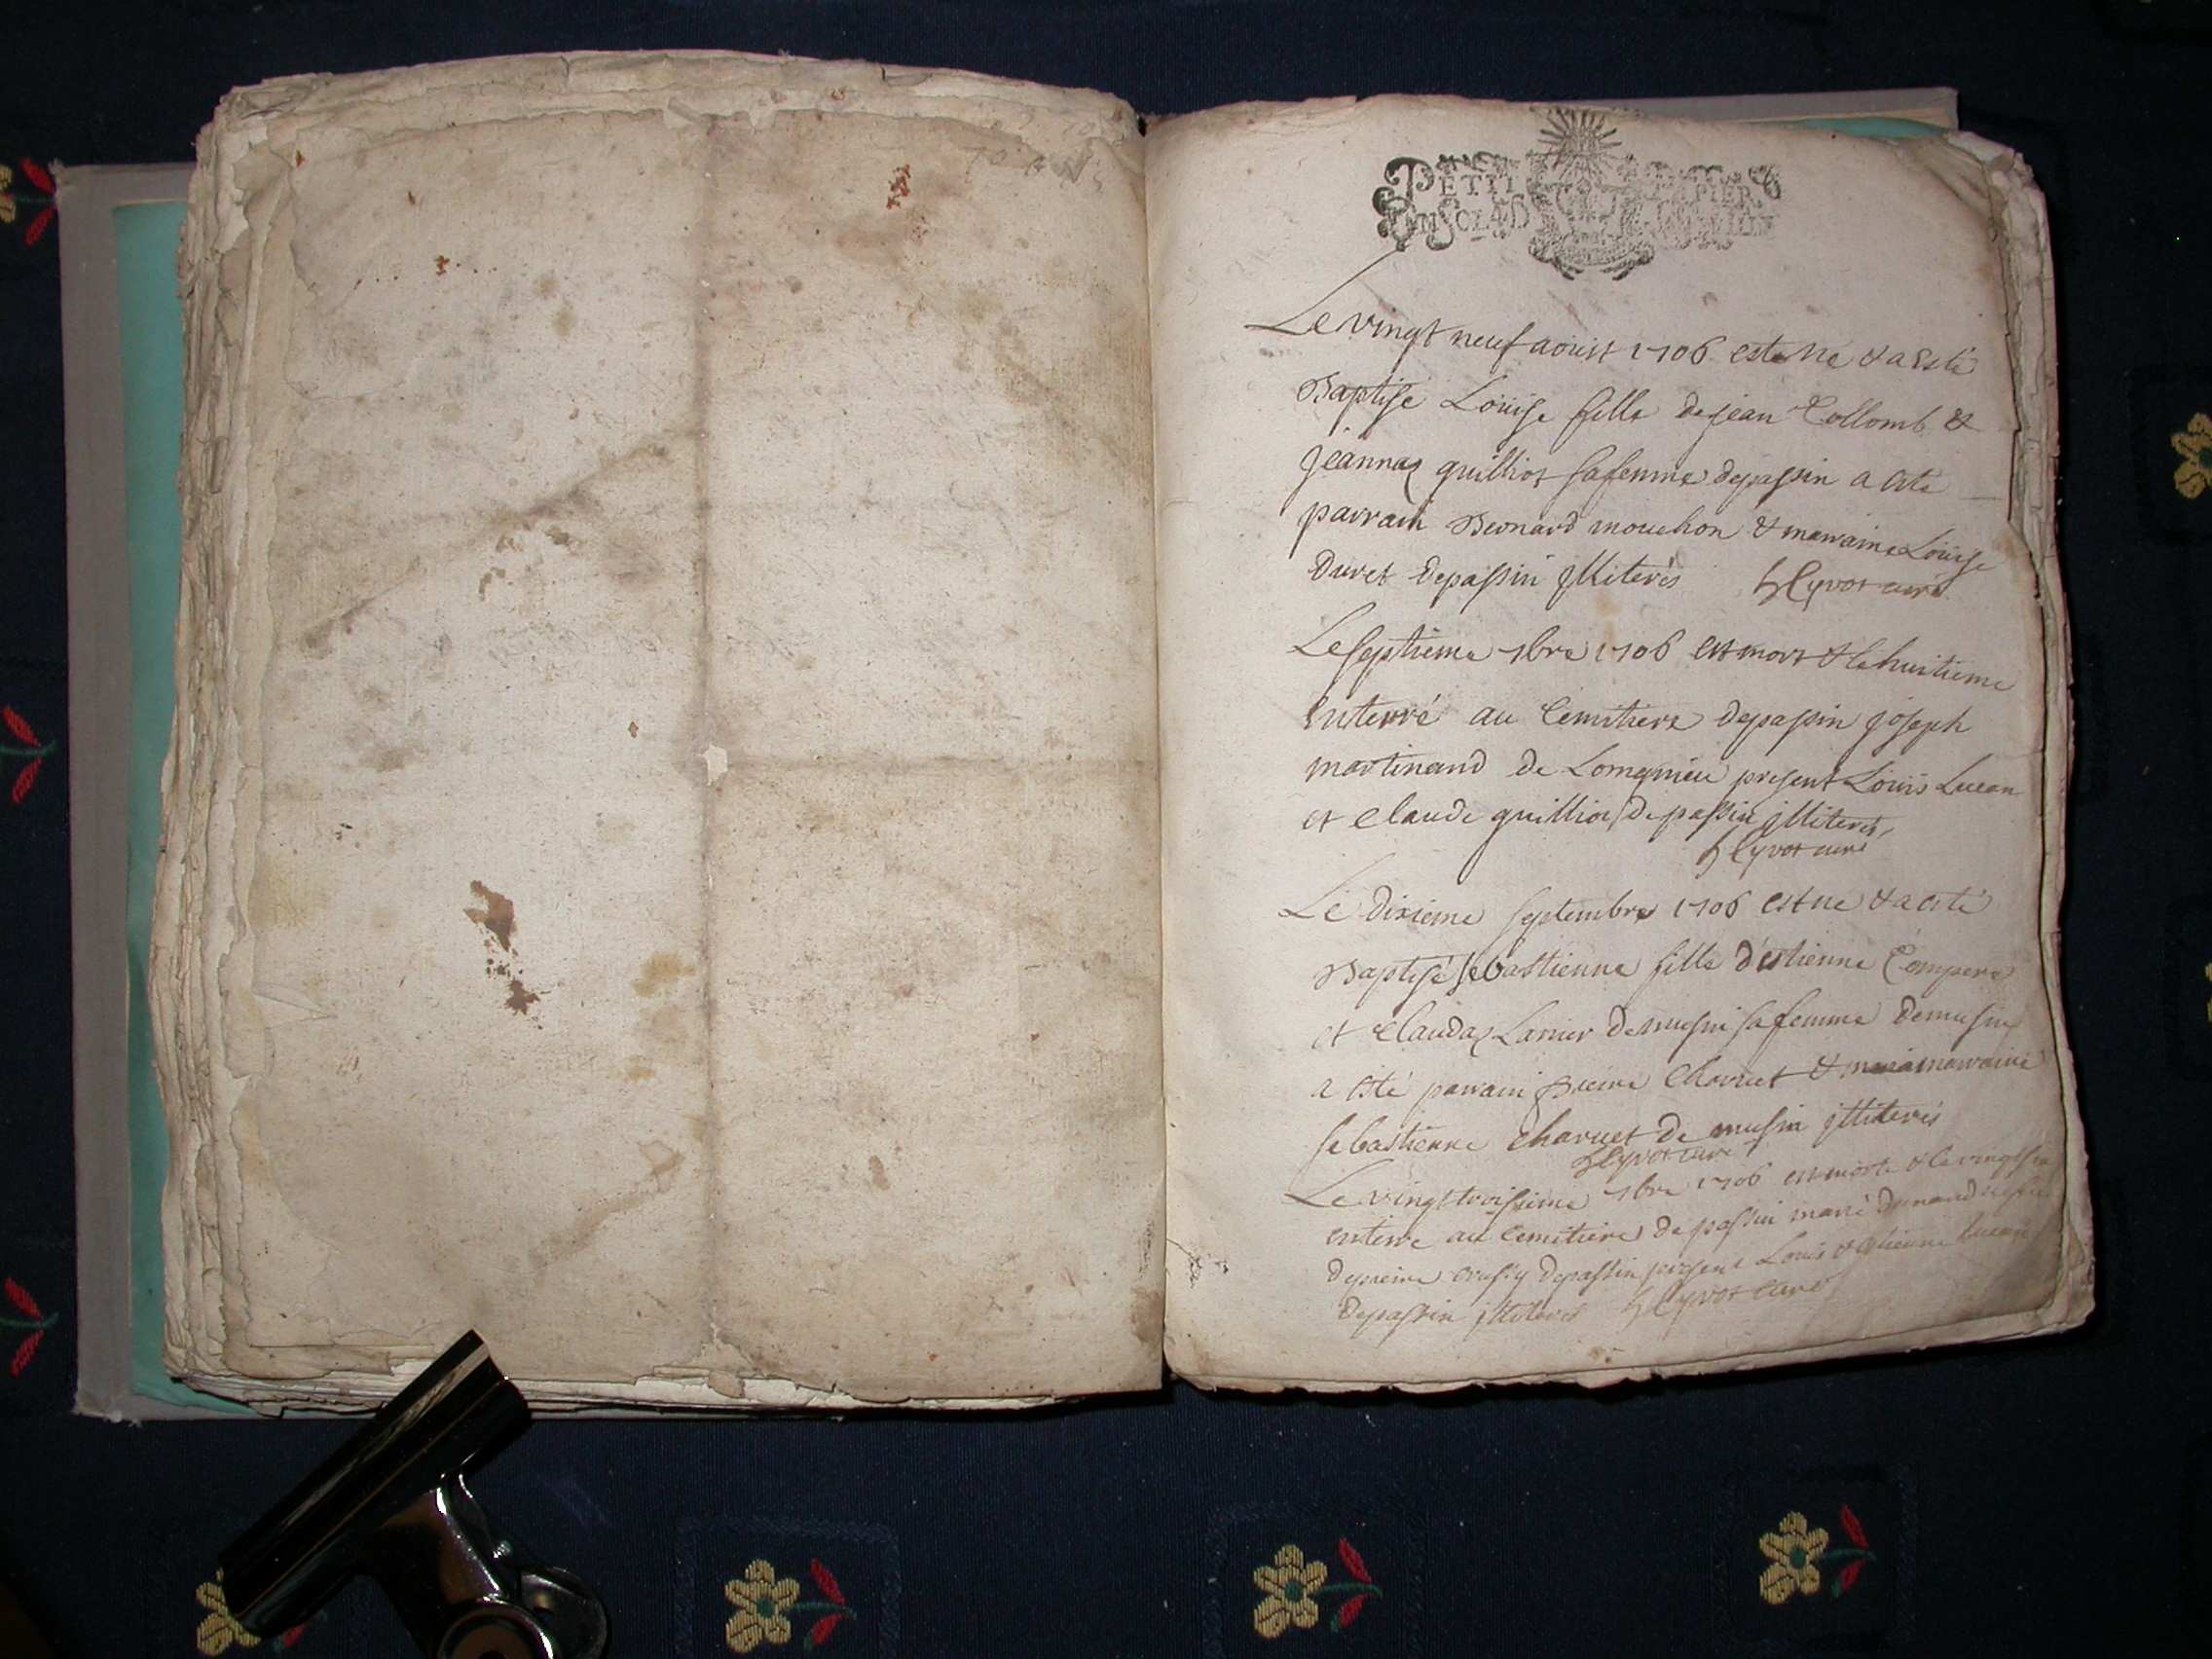 PETIT PAPIER
Le vingt neuf aoust 1706 est né & a esté
Baptisé Loüise fille de jean Collomb &
jeannaz guilliot sa femme de passin a esté
parrain Bernard mouchon & marraine Loüise
Duret de passin jlliterés hLyvot curé
Le septieme 7bre 1706 est mort & le huitieme
Enterré au Cemitiere de passin joseph
martinand de Lomgnieu present Loüis Lucan
et Claude guilliot de passin jlliterés
hLyvot curé
Le dixieme septembre 1706 est né & a esté
Baptisé sebastienne fille d'estienne Compere
et Claudaz Lanier de musin sa femme de musin
a esté parrain pierre Charvet & marraine
sebastienne Charvet de musin jlliterés
hLyvot curé
Le vingt troisieme 7bre 1706 est morte & le vingt
enterré au Cemitiere de passin marie
de passin present Louis & Estienne Lucan
de passin jlliterés hLyvot curé